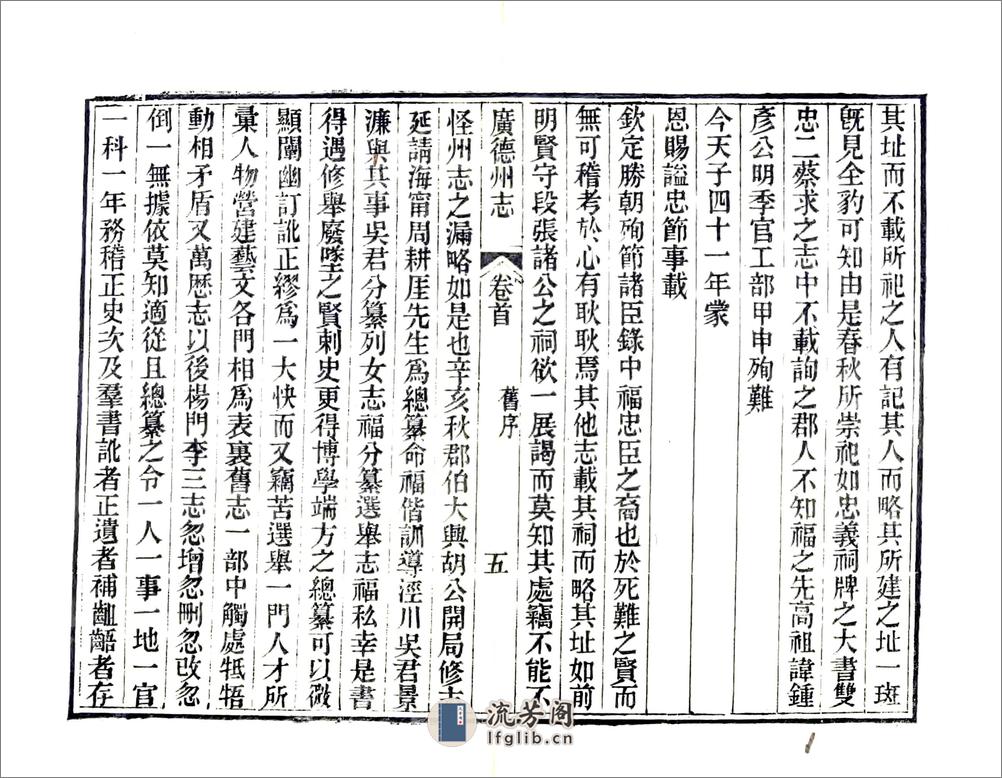 其址而不載所祀之人有記其人而略其所建之址一斑
旣見全豹可知由是春秋所崇祀如忠義祠牌之大書雙
忠二蔡求之志中不載詢之郡人不知福之先高祖諱鍾
彥公明季官工部甲申殉難
今天子四十一年蒙
恩賜謚忠節事載
欽定勝朝殉節諸臣錄中福忠臣之裔也於死難之賢而
無可稽考於心有耿耿焉其他志載其祠而略其址如前
明賢守段張諸公之祠欲一展謁而莫知其處竊不能不
廣德州志 卷首 舊序 五
怪州志之漏略如是也辛亥秋郡伯大興胡公開局修志
延請海甯周耕厓先生爲總纂命福偕訓導涇川吳君景
濂與其事吳君分纂列女志福分纂選舉志福私幸是書
得遇修舉廢墜之賢刺史更得博學端方之總纂可以微
顯闡幽訂訛正繆爲一大快而又竊苦選舉一門人才所
彙人物營建藝文各門相爲表裏舊志一部中觸處牴牾
動相矛盾又萬歷志以後楊門李三志忽增忽刪忽改忽
倒一無據依莫知適從且總纂之令一人一事一地一官
一科一年務稽正史次及羣書訛者正遺者補齟齬者存
流芳阁
lfglib.cn